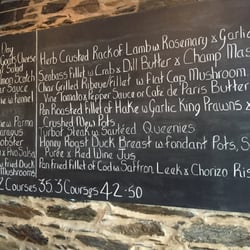 Day
Goats Cheese
Salad
Salmon Scotch
Herb Crusted Rack of Lamb w Rosemary & Garlic
Seabass Fillet w Crab & Dill Butter & Champ Mas
Char Grilled Ribeye/Fillet w Flat Cap Mushroom
Vine Tomato & Pepper Sauce or Cafe de Paris Butter
Pan Roasted Fillet of Hake w Garlic King Prawns &
Crushed New Pots
Turbot Steak w Sautéed Queenies
Honey Roast Duck Breast w Fondant Pots, S
Purée & Red Wine Jus
Pan Fried Fillet of Cod w Saffron, Leek & Chorizo Ris
w Parma
w Fried Duck
Mushrooms
2 Courses 35 3 Courses 42-50